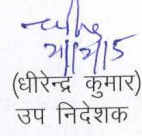 (धीरेन्द्र कुमार)
उप निदेशक